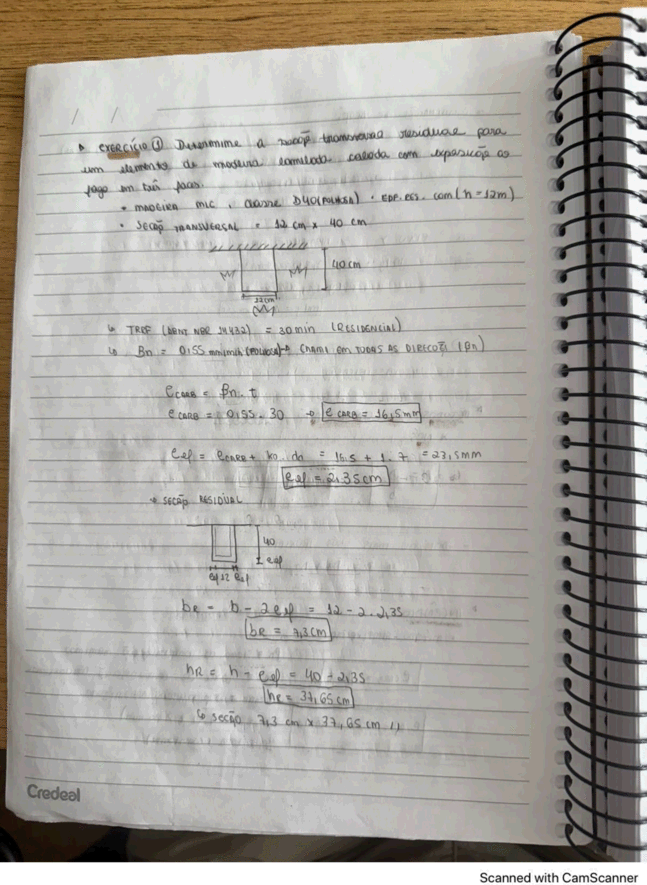 / /
EXERCÍCIO ① Determine a seção transversal residual para
um elemento de madeira lamelada colada com exposição ao
fogo em três faces.
• MADEIRA MLC, classe D40 (FOLHOSA) • EDF. RES. com (h = 12m)
• SEÇÃO TRANSVERSAL = 12 cm x 40 cm
40 cm
12cm
↳ TRRF (ABNT NBR 14432) = 30 min (RESIDENCIAL)
↳ βn = 0,55 mm/min (FOLHOSA) → CHAMA EM TODAS AS DIREÇÕES (βn)
e CARB = βn . t
e CARB = 0,55 . 30 → e CARB = 16,5mm
eef = eCARB + k0 . d0 = 16,5 + 1 . 7 = 23,5mm
eef = 2,35cm
→ SEÇÃO RESIDUAL
40
eef
eef 12 eef
bR = b - 2eef = 12 - 2 . 2,35
bR = 7,3cm
hR = h - eef = 40 - 2,35
hR = 37,65cm
↳ seção 7,3 cm x 37,65 cm //
Credeal
Scanned with CamScanner